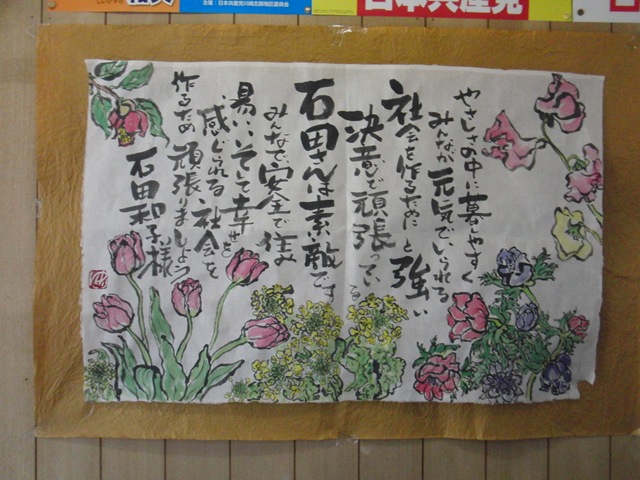 主催:日本共産党川崎北部地区委員会
日本共産党
やさしさの中に暮しやすく
みんなが元気でいられる
社会を作るためにと強い
決意で頑張っている
石田さんは素敵です
みんなで安全で住み
易い、そして幸せを
感じられる社会を
作るため頑張りましょう
石田和子様